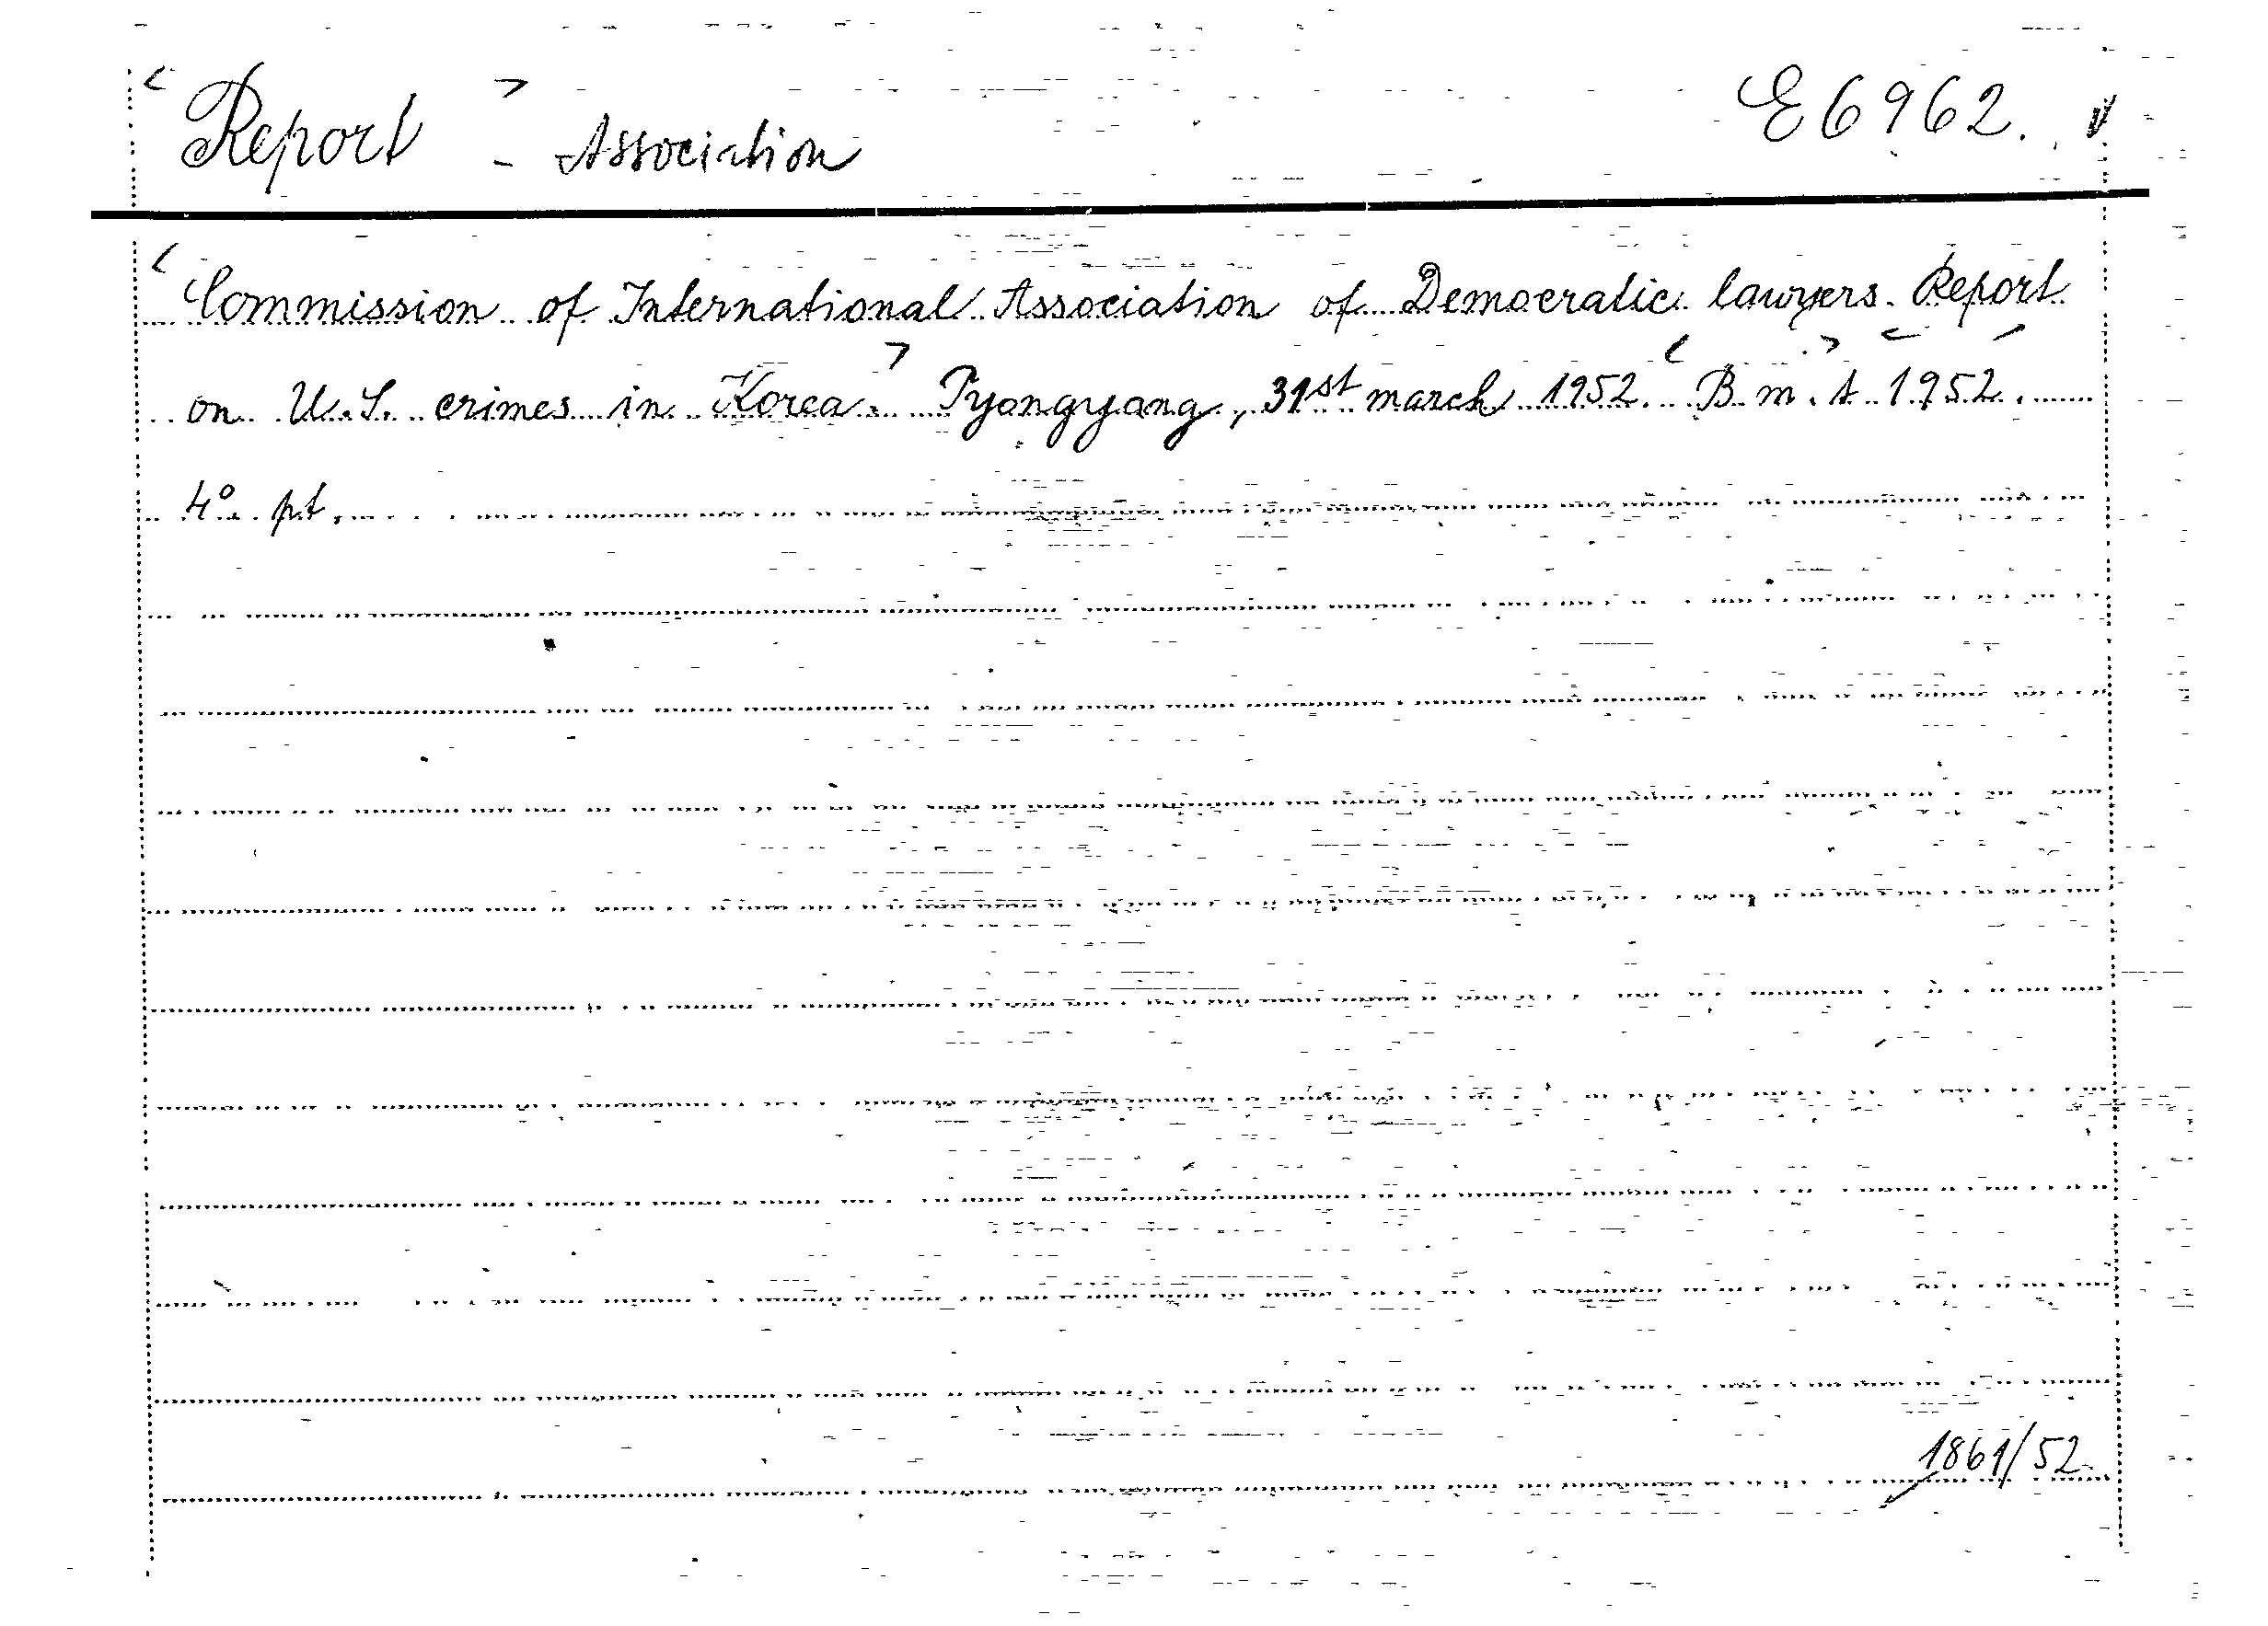 Report - Association E6962.
Commission of International Association of Democratic lawyers. Report
on U.S. crimes in Korea. Pyongyang, 31st march 1952. B m. t 1952.
4° pt.
1861/52